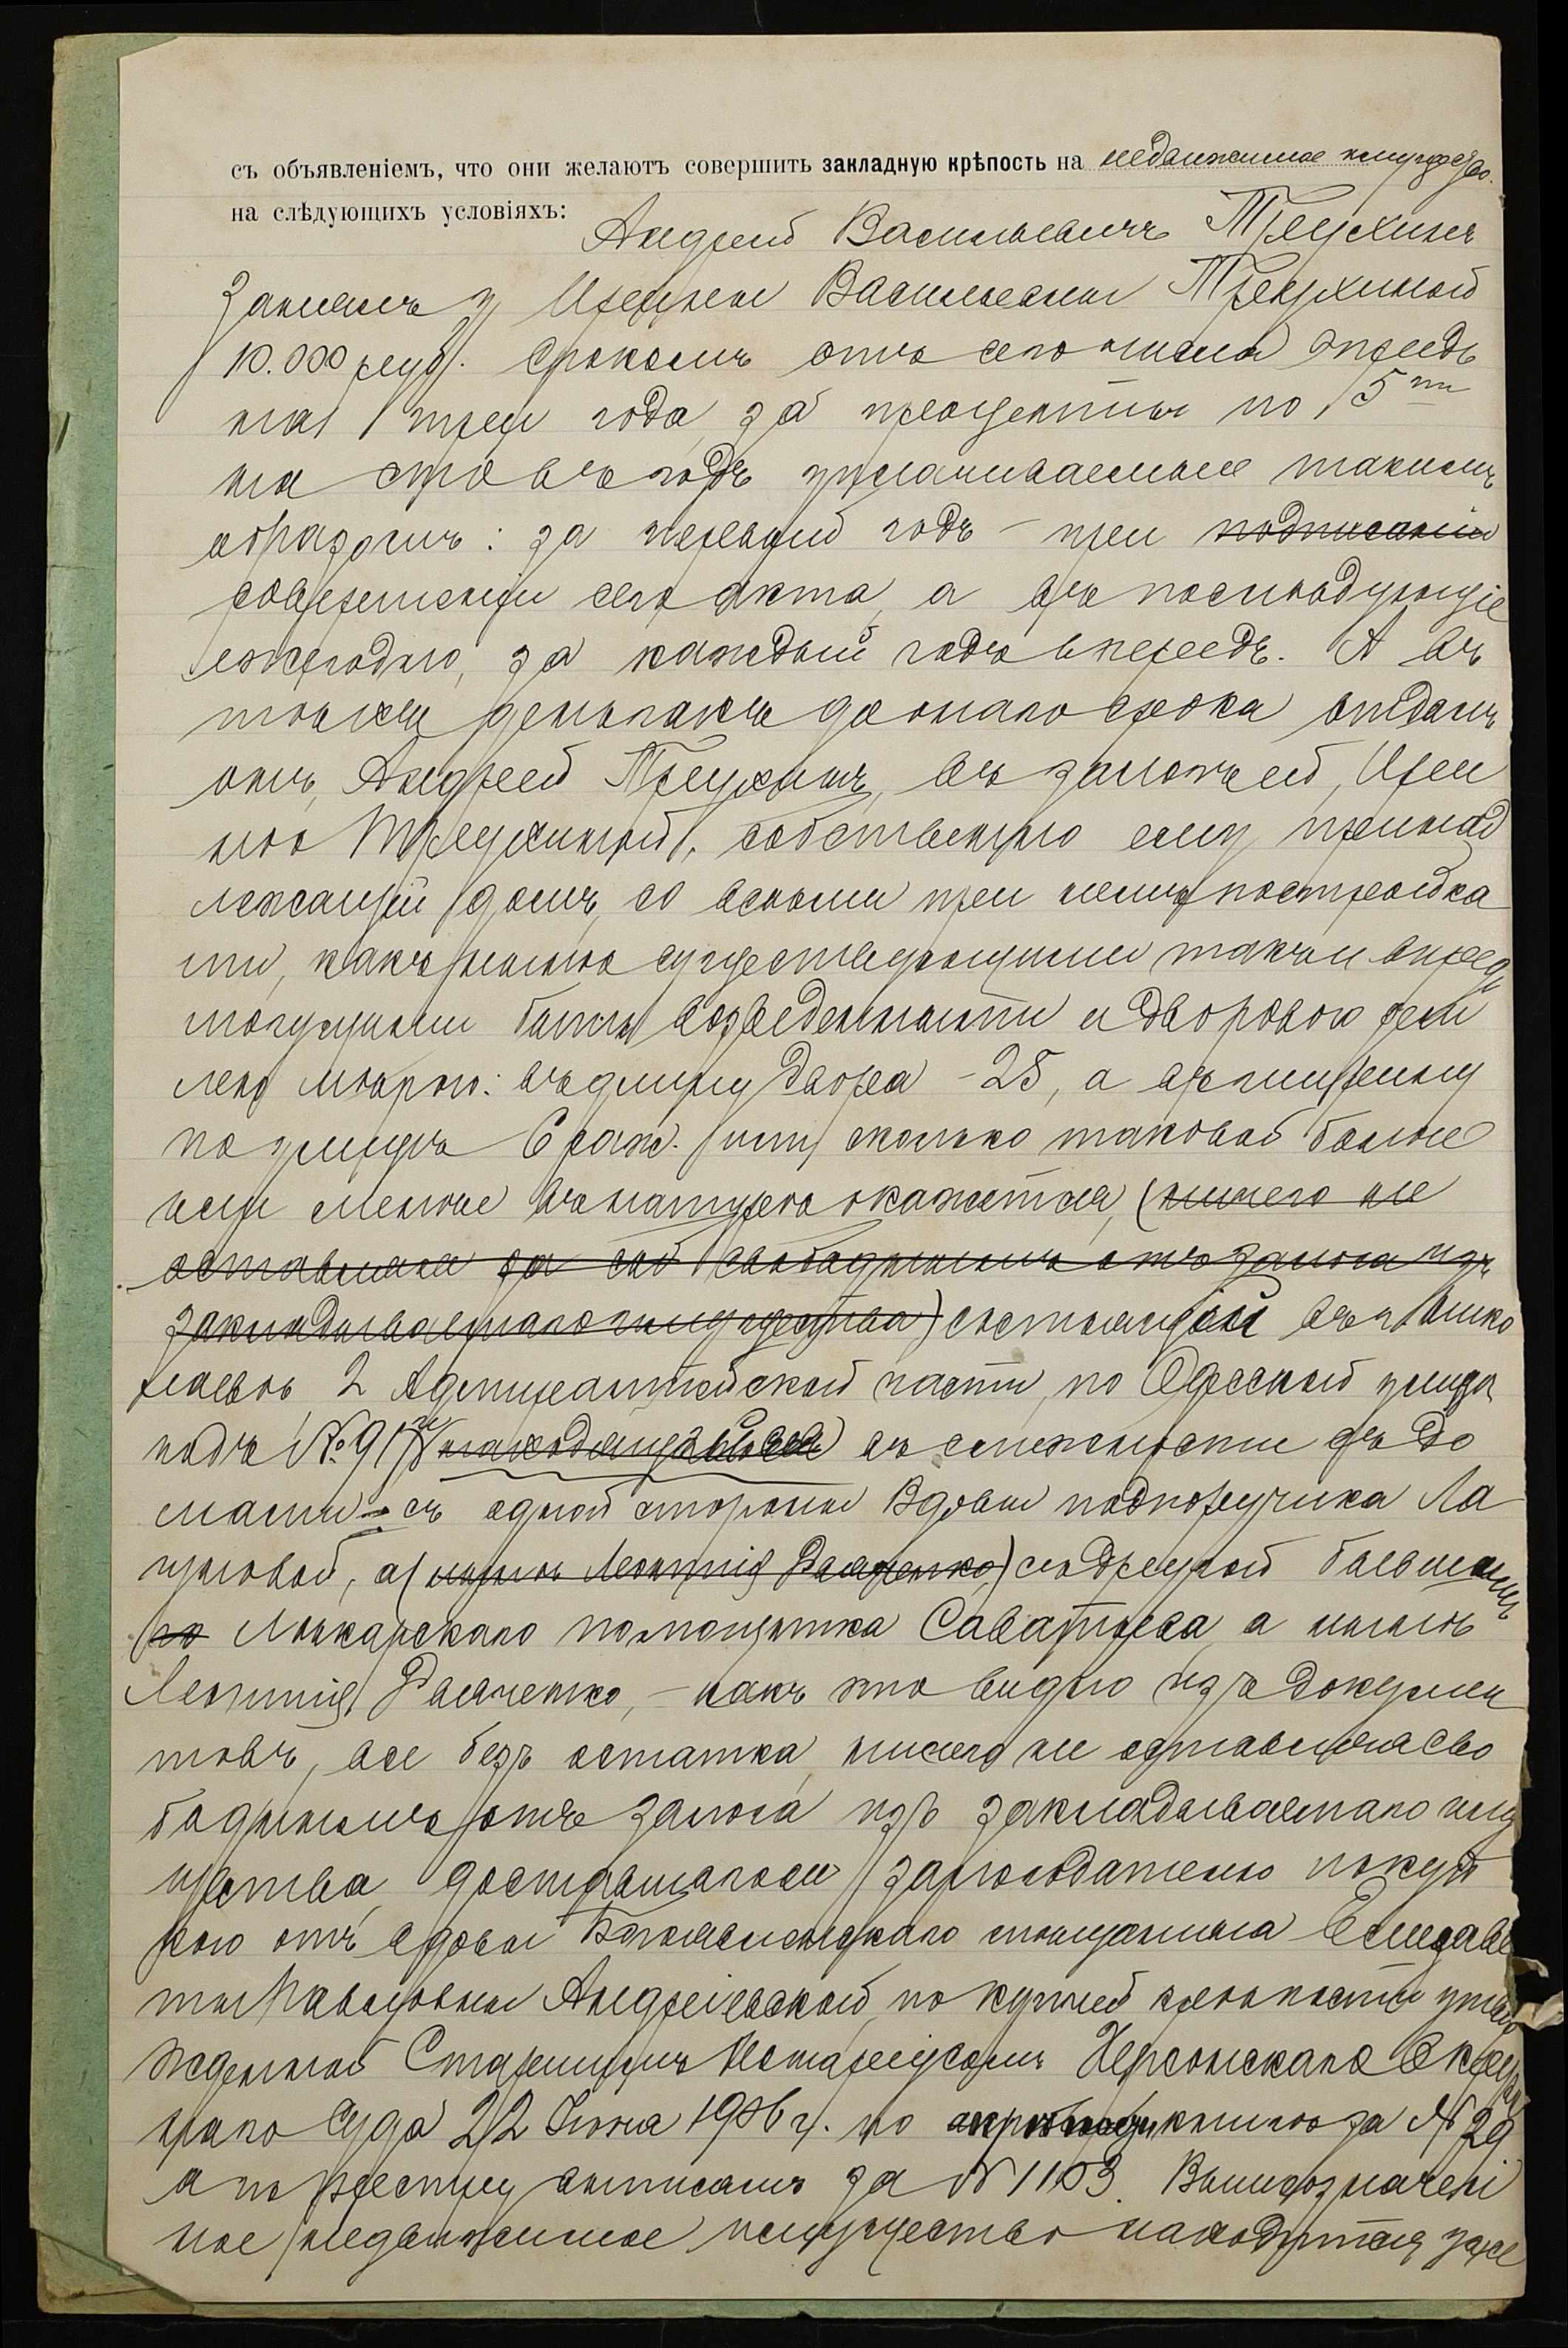 съ объявленіемъ, что они желаютъ совершить закладную крѣпость на недвижимое имущество.
на слѣдующихъ условіяхъ:
Андрей Васильевичъ Трецхинъ
занялъ у Ирины Васильевны Трецхиной
10.000 руб. срокомъ отъ сего числа впредь
на три года, за проценты по 5ти
на сто въ годъ уплачиваемые такимъ
образомъ: за первый годъ – при подписаніи
совершеніи сего акта, а въ послѣдующіе
ежегодно, за каждый годъ впередъ. А въ
тѣхъ деньгахъ до онаго срока отдалъ
онъ, Андрей Трецхинъ, въ залогъ ей, Ири
нѣ Трецхиной, собственно ему принад
лежащій домъ, со всѣми при немъ постройка
ми, какъ нынѣ существующими такъ и впредь
могущими быть возведенными и дворовою зем
лею мѣрою: въ длину двора – 25, а въ ширину
по улицѣ 6 саж. или сколько таковой болѣе
или менѣе въ натурѣ окажется, (ничего не
оставляя за собой свободнымъ отъ залога изъ
закладываемаго имущества) состоящій въ г. Нико
лаевѣ, 2 Адмиралтейской части, по Одесской улицѣ
подъ № 91 въ смежности съ до
мами – съ одной стороны вдовы подпоручика Ла
, а (нынѣ Леонтія) съ другой бывшаго
Лѣкарскаго помощника Саватѣева, а нынѣ
Леонтія, – какъ это видно изъ докумен
товъ, все безъ остатка, ничего не оставляя сво
боднымъ отъ залога изъ закладываемаго иму
щества, доставшагося залогодателю покуп
кою отъ вдовы Богоявленскаго мѣщанина Елизаве
ты Павловны Андріевской, по купчей крѣпости утвер
жденной Старшимъ Нотаріусомъ Херсонскаго Окруж
наго Суда 22 Іюня 1906 г. по книгѣ за № 29
а по реестру записанъ за № 1103. Вышеозначен
ное недвижимое имущество находится уже